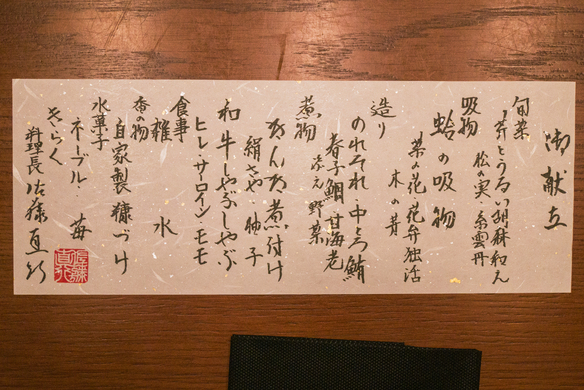 御献立
旬菜
芹とうるい胡麻和え
松の実・糸雲丹
吸物
蛤の吸物
菜の花・花弁独活
木の芽
造り
のれそれ・中とろ鮪
春子鯛・甘海老
添え野菜
煮物
あんこう煮付け
絹さや・柚子
和牛しゃぶしゃぶ
ヒレ・サロイン・モモ
食事
雑水
香の物
自家製糠づけ
水菓子
ネーブル・苺
きらく
料理長 佐藤直行